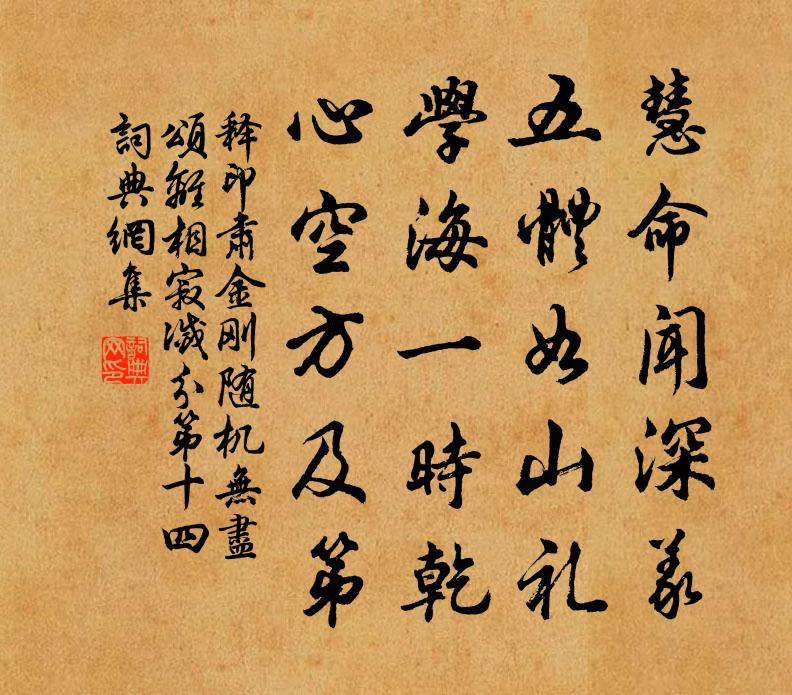 慧命聞深義
五體如山礼
學海一時乾
心空方及第
释印肃金刚随机無盡
頌離相寂滅分第十四
詞典網集
詞典
网印